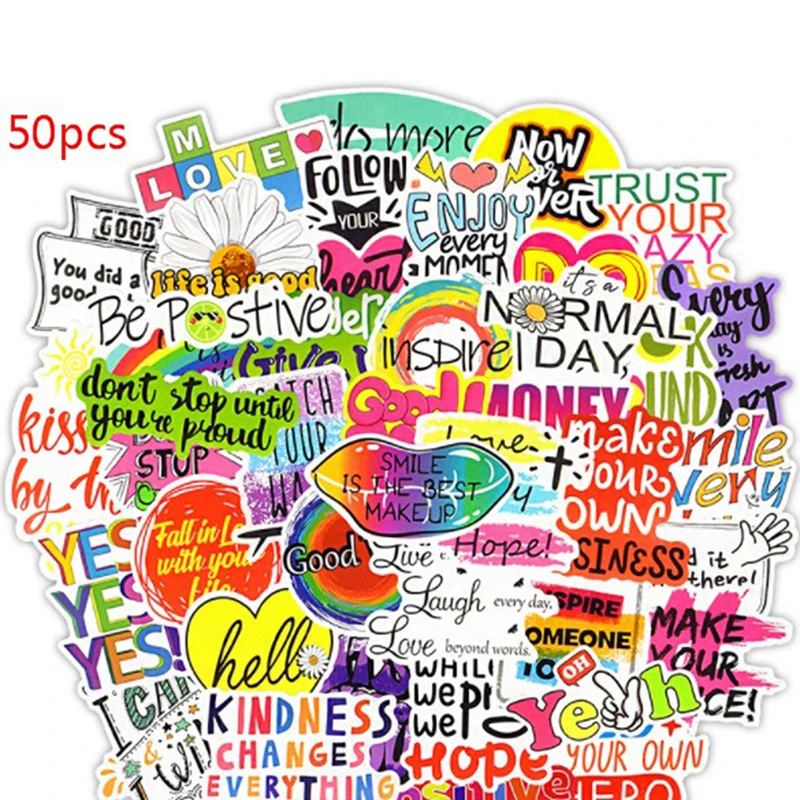 50pcs
M
LOVE
do more
NOW
or
FOLLOW
YOUR
heart
ENJOY
every
MOMENT
TRUST
YOUR
GOOD
You did a
good
life is good
Be Positive
inspire
it's a
NORMAL
DAY,
Every
day
is
fresh
don't stop until
you're proud
STUP
CATCH
YOUR
Good
MONEY
kiss
by th
SMILE
IS THE BEST
MAKEUP
Love
make
your
OWN
BUSINESS
smile
very
Fall in Lo
with your
Life
YES!
YES!
YES!
Good
Live
Hope!
Laugh every day.
Love beyond words.
INSPIRE
SOMEONE
TO
d it
there!
MAKE
YOUR
CE!
hello
WHILE
we
we
OH
Yeah
I CAN
&
I WI
KINDNESS
CHANGES
EVERYTHING
HOPE
YOUR OWN
HERO